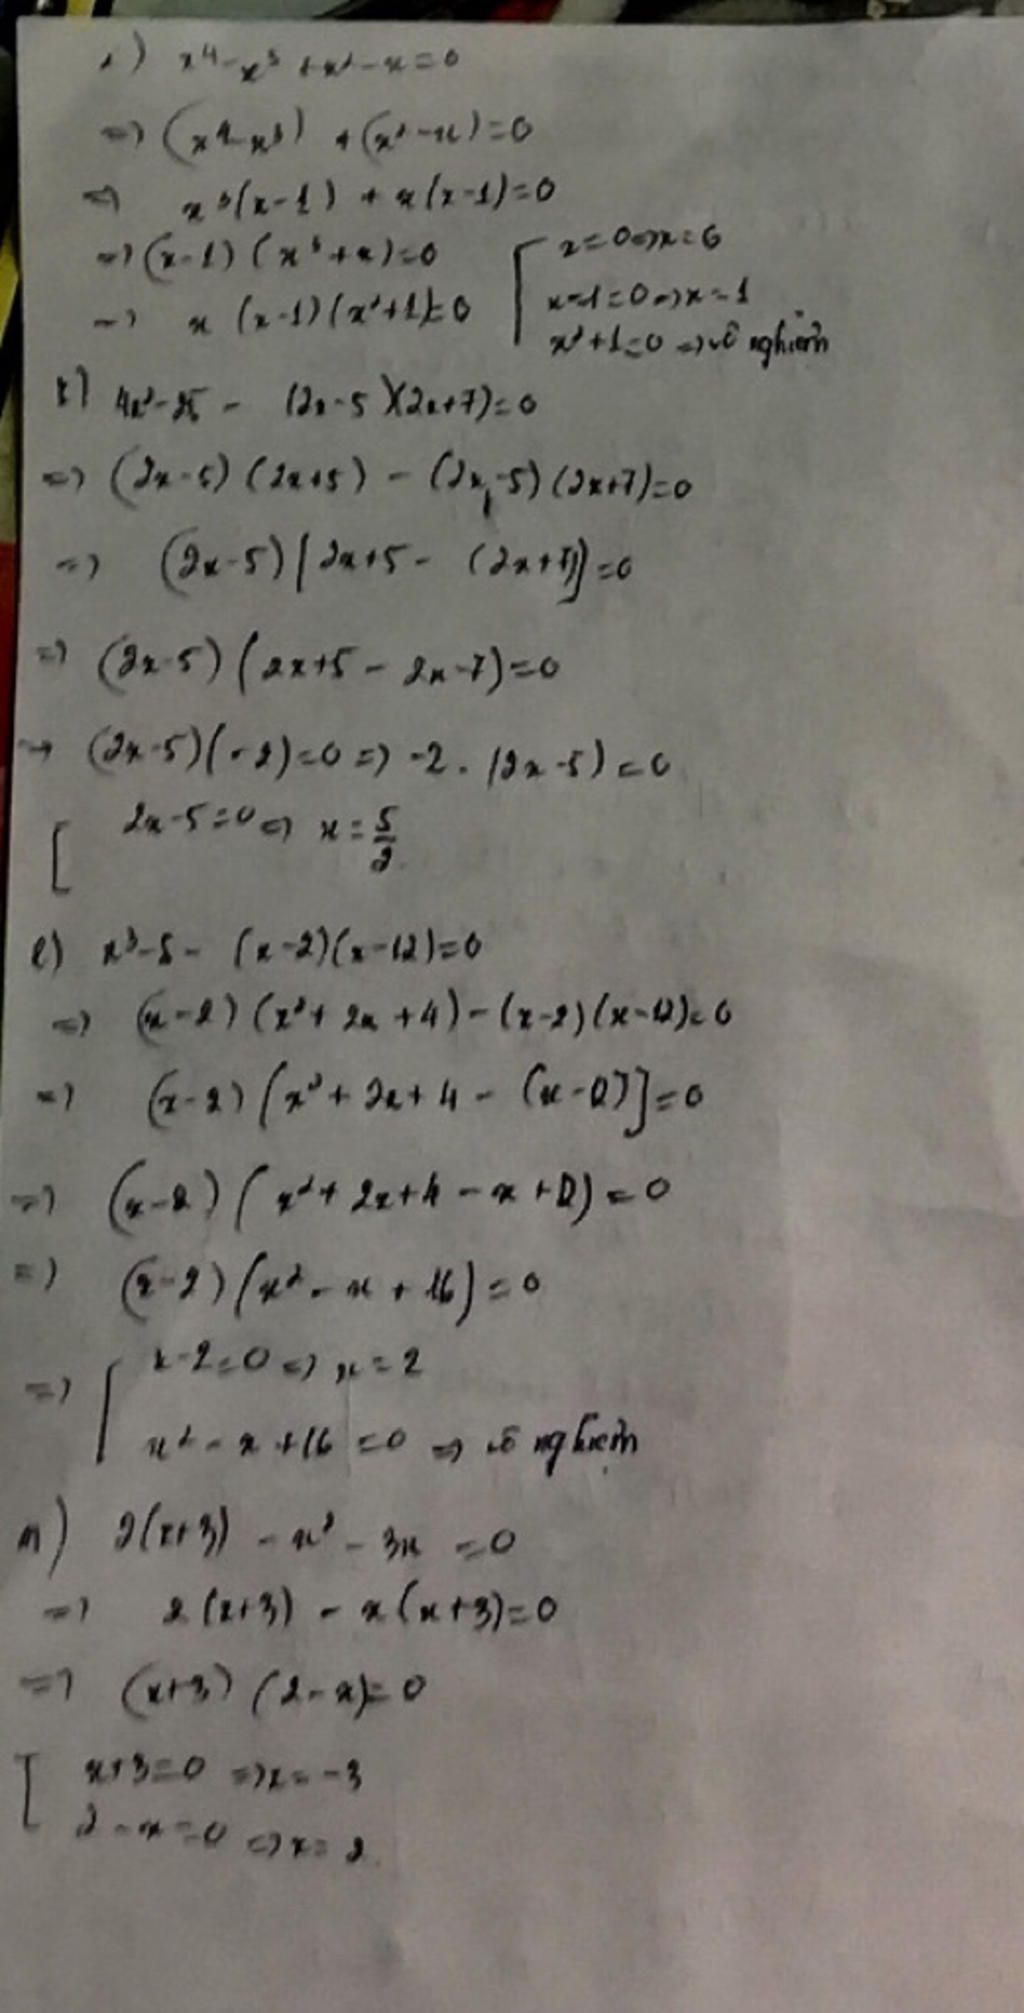 x⁴ - x³ + x² - x = 0
=> (x⁴ - x³) + (x² - x) = 0
=> x³(x-1) + x(x-1) = 0
=> (x-1)(x³+x) = 0
=> x(x-1)(x²+1) = 0
[ x = 0 => x = 0
x-1 = 0 => x = 1
x²+1 = 0 => vô nghiệm
k) 4x² - 25 - (2x-5)(2x+7) = 0
=> (2x-5)(2x+5) - (2x-5)(2x+7) = 0
=> (2x-5)[2x+5 - (2x+7)] = 0
=> (2x-5)(2x+5 - 2x-7) = 0
=> (2x-5)(-2) = 0 => -2.(2x-5) = 0
[ 2x-5 = 0 => x = 5/2
l) x³ - 8 - (x-2)(x-12) = 0
=> (x-2)(x² + 2x + 4) - (x-2)(x-12) = 0
=> (x-2)[x² + 2x + 4 - (x-12)] = 0
=> (x-2)(x² + 2x + 4 - x + 12) = 0
=> (x-2)(x² - x + 16) = 0
=> [ x-2 = 0 => x = 2
x² - x + 16 = 0 => vô nghiệm
m) 2(x+3) - x² - 3x = 0
=> 2(x+3) - x(x+3) = 0
=> (x+3)(2-x) = 0
[ x+3 = 0 => x = -3
2-x = 0 => x = 2